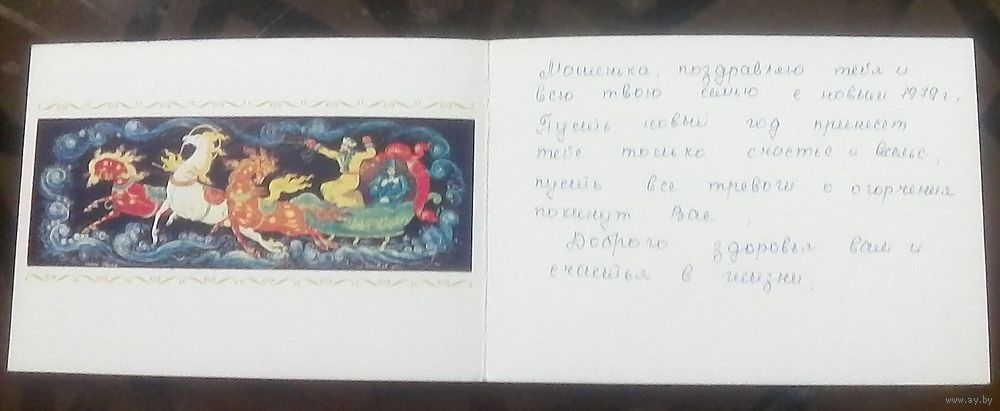 поздравляю тебя и
всю твою семью с новым 1979 г.
Пусть новый год принесет
тебе только счастье и
пусть все тревоги и огорчения
покинут Вас.
Доброго здоровья вам и
счастья в жизни.
www.ay.by